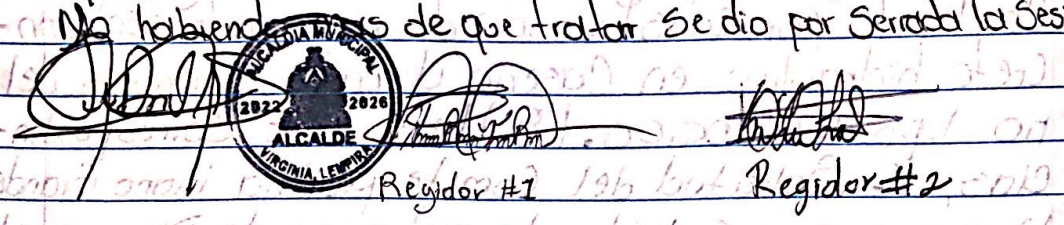 No habiendo mas de que tratar Se dio por Serrada la Ses
ALCALDIA MUNICIPAL
2022 2026
ALCALDE
VIRGINIA, LEMPIRA
Regidor #1 Regidor #2